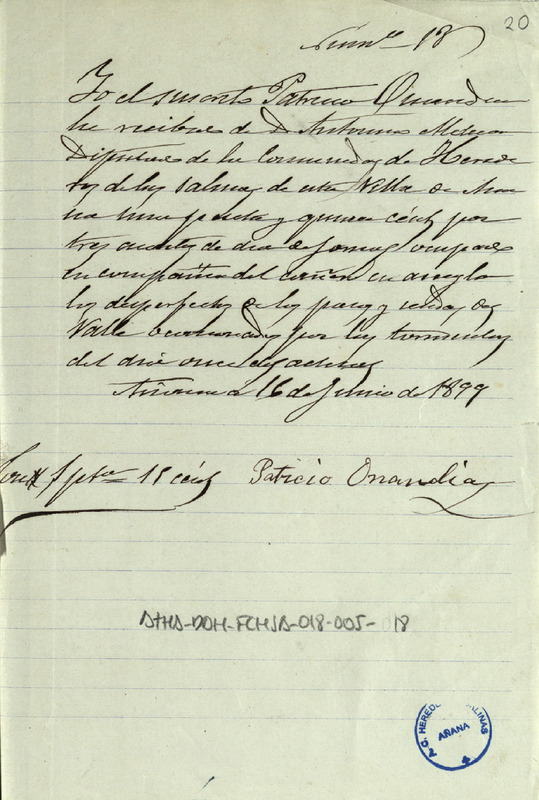 20
Num.º 18
Yo el suscrito Patricio Onandia
he recibido de D Antonio
Diputado de la Comunidad de Herede
ros de las Salinas de esta Villa de Aña
na una peseta y quince cént por
tres cuartos de dia de jornal ocupado
en compañia del en arreglar
los desperfectos de los y
Valle ocasionados por las tormentas
del dia once del actual
Añana á 16 de Junio de 1899
Son 1 pta 15 cént Patricio Onandia
ATHA-DOH-FCHSA-018-005-018
A.C. HEREDE ALINAS
AÑANA